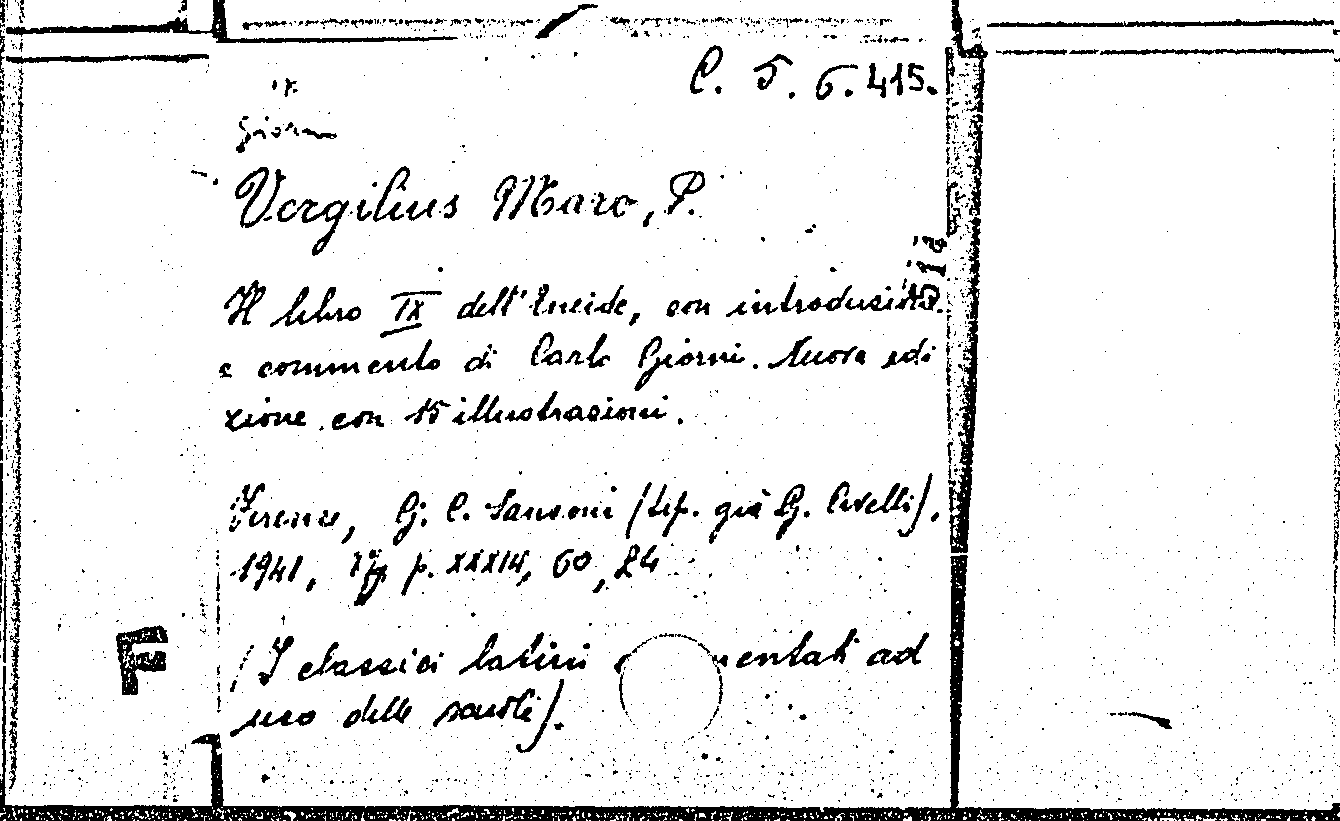 C. 5. 6. 415.
IX
Giorni
Vergilius Maro, P.
Il libro IX dell'Eneide, con introduzione
e commento di Carlo Giorni. Nuova edi
zione con 15 illustrazioni.
Firenze, G. C. Sansoni (tip. già G. Civelli),
1941, p. XXXIV, 60, 24
(I classici latini mentati ad
uso delle scuole).
F